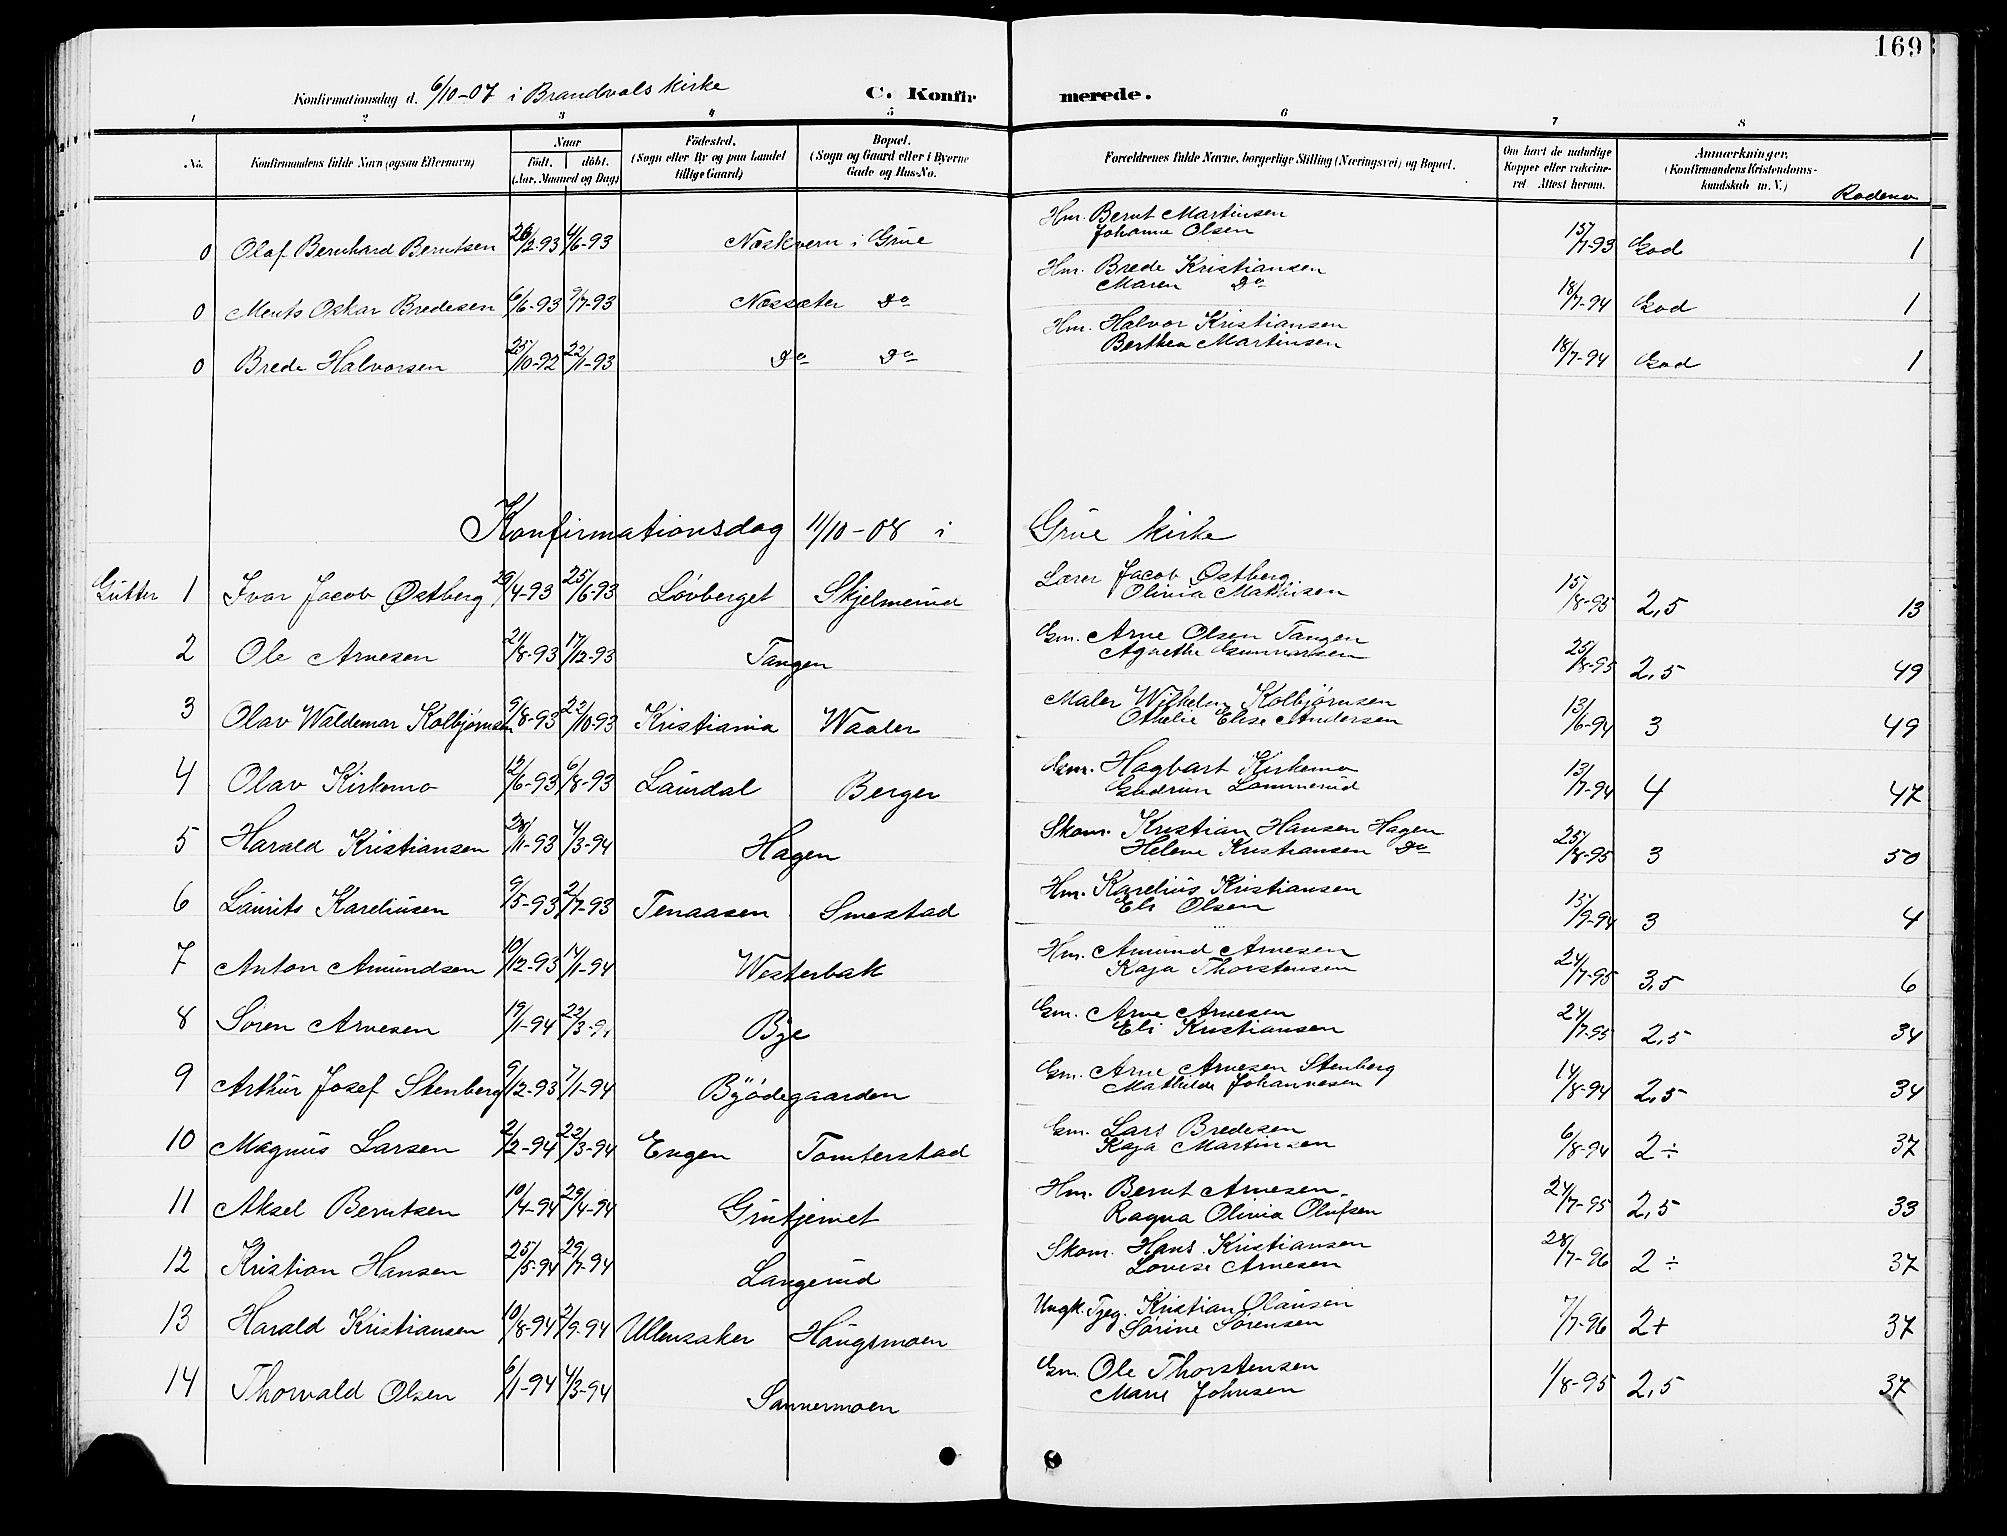 169
Konfirmationsdag d. 6/10-07 i Brandvals kirke C. Konfirmerede.
1 2 3 4 5 6 7 8
No. Konfirmandens fulde Navn (ogsaa Efternavn) Naar født. døbt. (Aar, Maaned og Dag) Fødested. (Sogn eller By og paa Landet tillige Gaard) Bopæl. (Sogn og Gaard eller i Byerne Gade og Hus-No. Forældrenes fulde Navne, borgerlige Stilling (Næringsvei) og Bopæl. Om havt de naturlige Kopper eller vakcineret. Attest herom. Anmærkninger. (Konfirmandens Kristendomskundskab m. V.) Rodeno
0 Olaf Bernhard Berntsen 26/2-93 4/6-93 Næskvern i Grue Hm. Bernt Martinsen Johanne Olsen 15/7-93 God 1
0 Ments Oskar Bredesen 6/6-93 9/7-93 Næssæter do Hm. Brede Kristiansen Maren do 18/7-94 God 1
0 Brede Halvorsen 25/10-92 22/1-93 do do Hm. Halvor Kristiansen Berthea Martinsen 18/7-94 God 1
Konfirmationsdag 11/10-08 i Grue kirke
Gutter 1 Ivar Jacob Østberg 29/4-93 25/6-93 Løvberget Skjelmerud Lærer Jacob Østberg Olivia Mathisen 15/8-95 2,5 13
2 Ole Arnesen 21/8-93 17/12-93 Tangen Gm. Arne Olsen Tangen Agnethe Gunnarsen 25/8-95 2,5 49
3 Olav Waldemar Kolbjørnsen 9/8-93 22/10-93 Kristiania Waaler Maler Wilhelm Kolbjørnsen Othelie Elise Andersen 13/6-94 3 49
4 Olav Kirkemo 12/6-93 6/8-93 Laurdal Berger Gm. Hagbart Kirkemo Gudrun Lommerud 13/7-94 4 47
5 Harald Kristiansen 28/11-93 4/3-94 Hagen Skom. Kristian Hansen Hagen Helene Kristiansen do 25/8-95 3 50
6 Laurits Kareliusen 9/5-93 2/7-93 Tenaasen Smestad Hm. Karelius Kristiansen Eli Olsen 15/9-94 3 4
7 Anton Amundsen 10/12-93 14/1-94 Westerbak Hm. Amund Arnesen Kaja Thorstensen 24/7-95 3,5 6
8 Søren Arnesen 19/1-94 22/3-9 Bye Gm. Arne Arnesen Eli Kristiansen 24/7-95 2,5 34
9 Arthur Josef Stenberg 9/12-93 7/1-94 Byødegaarden Gm. Arne Arnesen Stenberg Mathilde Johannesen 14/8-94 2,5 34
10 Magnus Larsen 2/2-94 22/3-94 Engen Tomterstad Gm. Lars Bredesen Kaja Martinsen 6/8-94 2÷ 37
11 Aksel Berntsen 10/4-94 29/4-94 Grutjernet Hm. Bernt Arnesen. Ragna Olivia Olufsen 24/7-95 2,5 33
12 Kristian Hansen 25/5-94 29/7-94 Langerud Skom. Hans Kristiansen Lovise Arnesen 28/7-96 2÷ 37
13 Harald Kristiansen 10/8-94 2/9-94 Ullensaker Haugsmoen Ungk. Tjeg. Kristian Olausen Sørine Sørensen 7/7-96 2+ 37
14 Thorvald Olsen 6/1-94 4/3-94 Sannermoen Gm. Ole Thorstensen Marie Johnsen 1/8-95 2,5 37